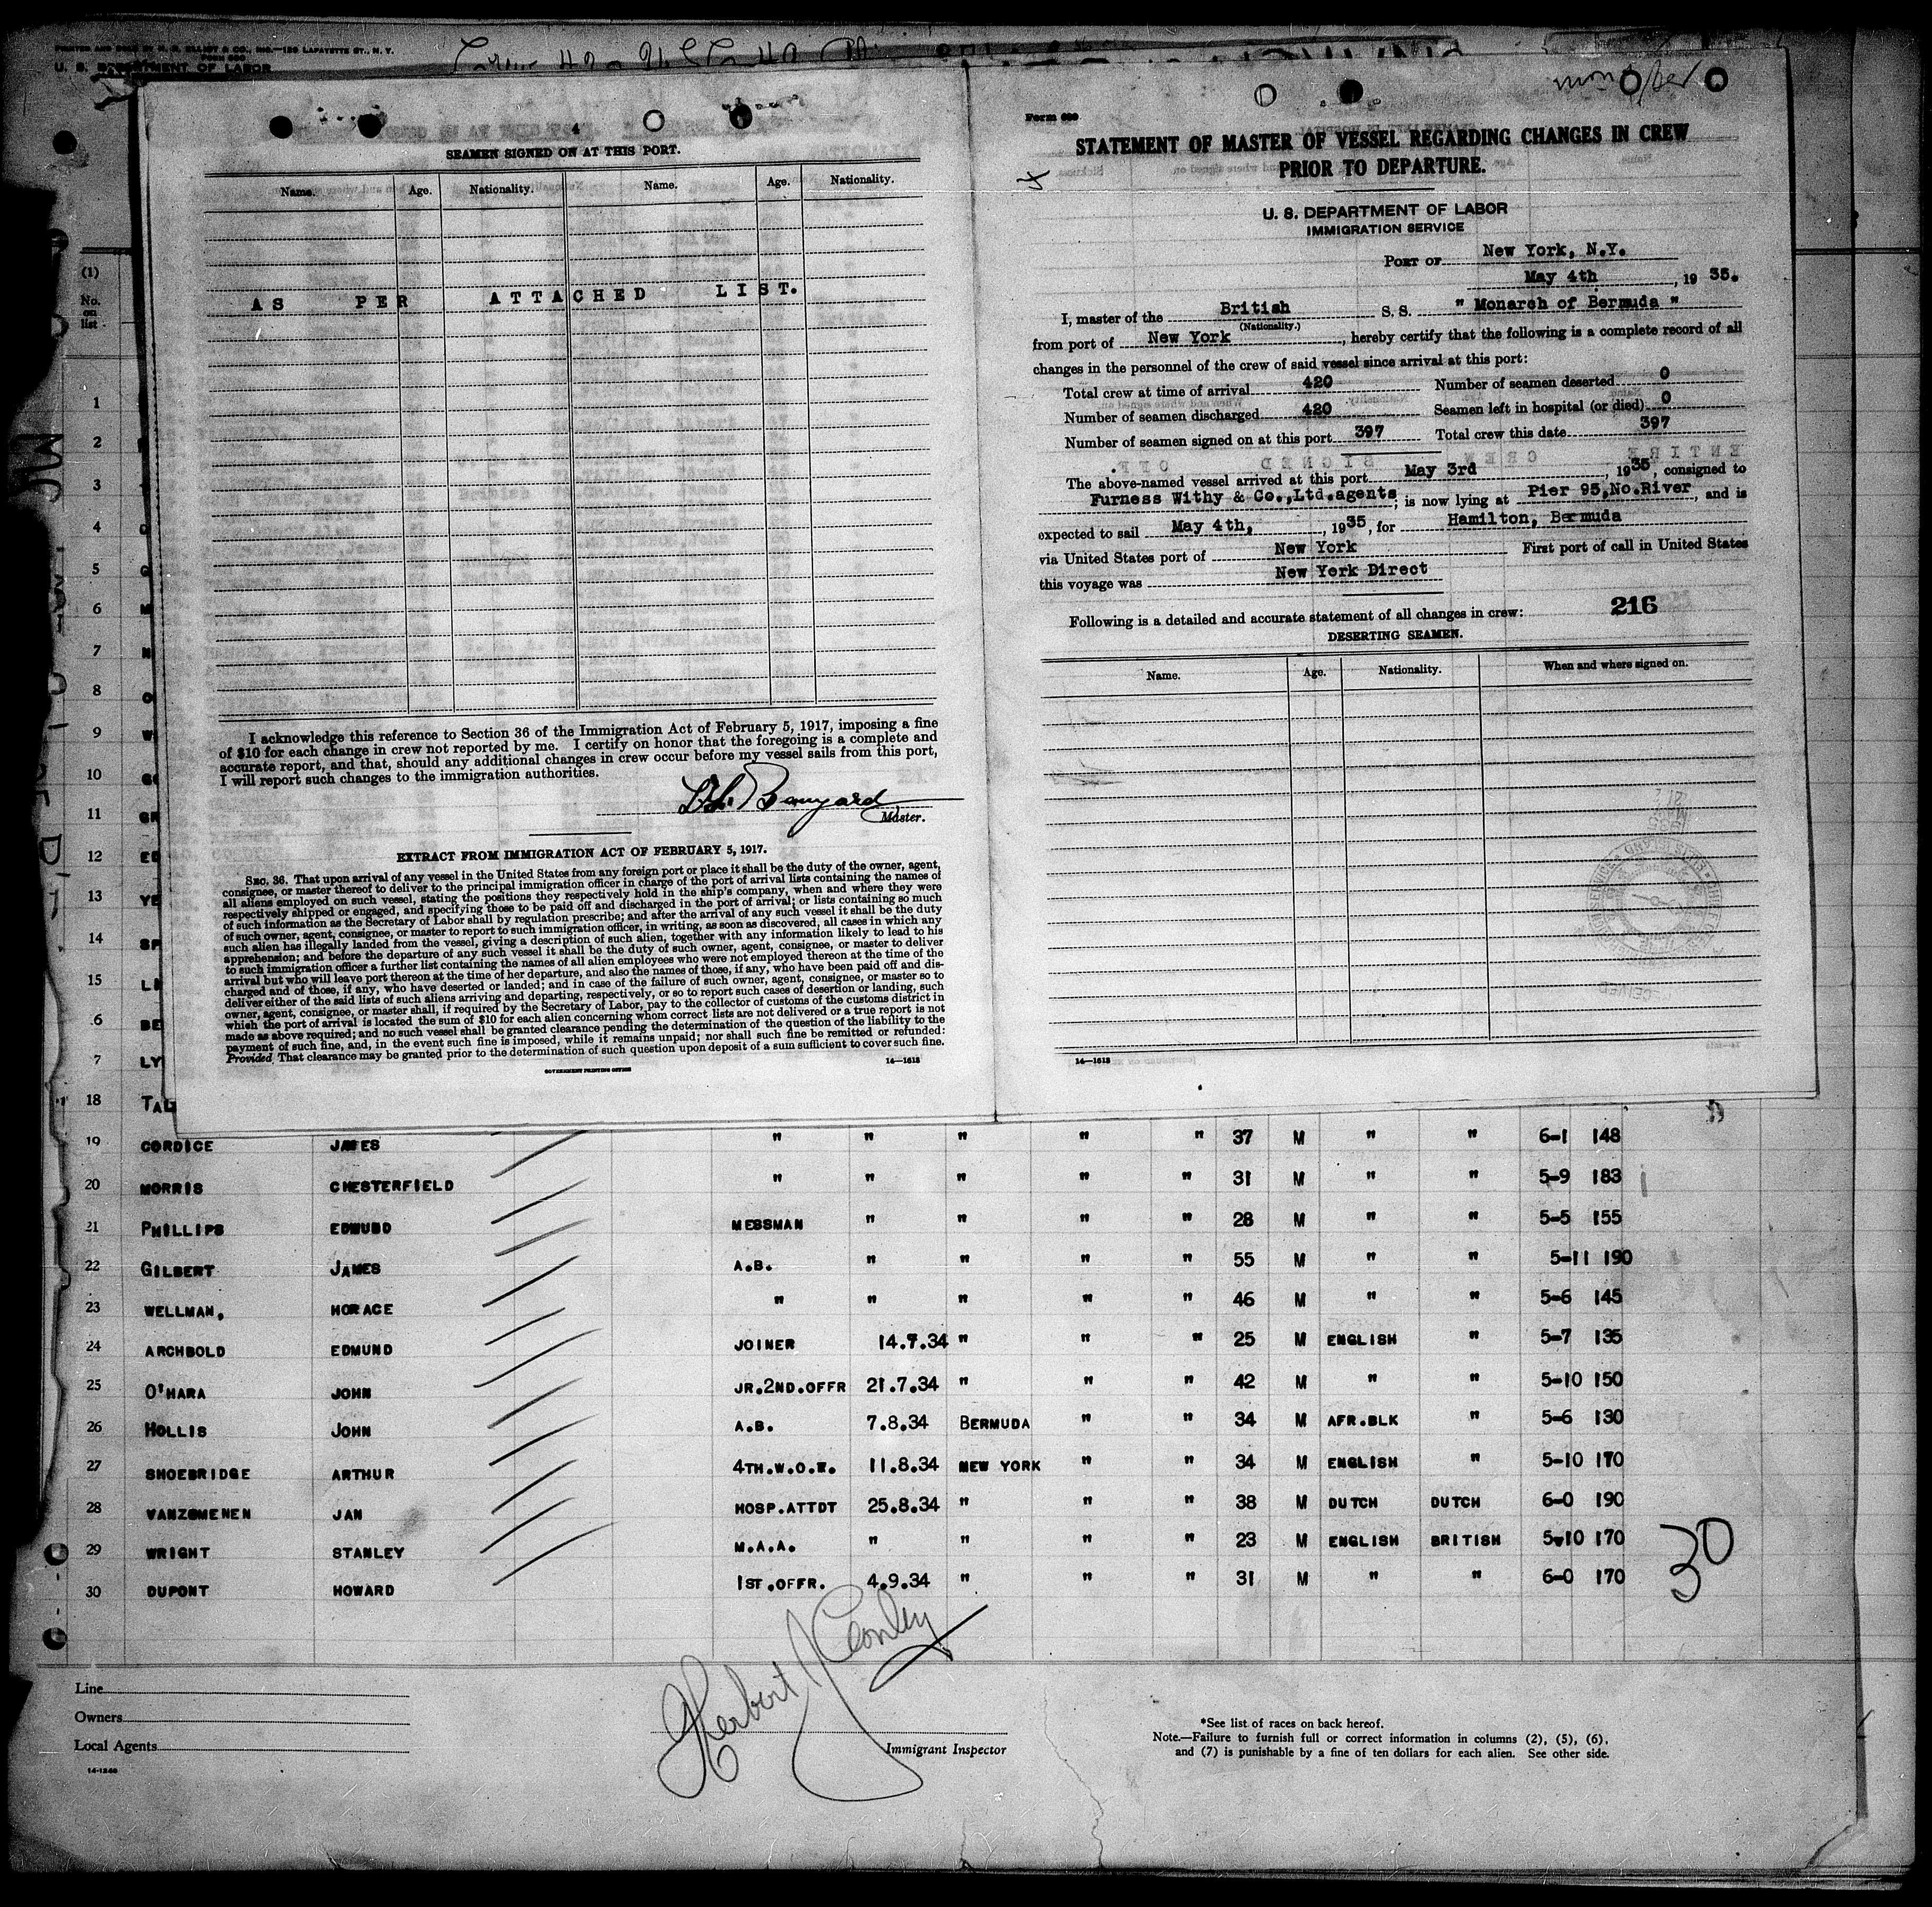 PRINTED AND SOLD BY H. R. ELLIOT & CO., INC.—129 LAFAYETTE ST., N. Y.
Form 680
U. S. DEPARTMENT OF LABOR
(1)
No.
on
list
SEAMEN SIGNED ON AT THIS PORT.
Name. Age. Nationality. Name. Age. Nationality.
AS PER ATTACHED LIST.
I acknowledge this reference to Section 36 of the Immigration Act of February 5, 1917, imposing a fine
of $10 for each change in crew not reported by me. I certify on honor that the foregoing is a complete and
accurate report, and that, should any additional changes in crew occur before my vessel sails from this port,
I will report such changes to the immigration authorities.
Master.
EXTRACT FROM IMMIGRATION ACT OF FEBRUARY 5, 1917.
SEC. 36. That upon arrival of any vessel in the United States from any foreign port or place it shall be the duty of the owner, agent,
consignee, or master thereof to deliver to the principal immigration officer in charge of the port of arrival lists containing the names of
all aliens employed on such vessel, stating the positions they respectively hold in the ship's company, when and where they were
respectively shipped or engaged, and specifying those to be paid off and discharged in the port of arrival; or lists containing so much
of such information as the Secretary of Labor shall by regulation prescribe; and after the arrival of any such vessel it shall be the duty
of such owner, agent, consignee, or master to report to such immigration officer, in writing, as soon as discovered, all cases in which any
such alien has illegally landed from the vessel, giving a description of such alien, together with any information likely to lead to his
apprehension; and before the departure of any such vessel it shall be the duty of such owner, agent, consignee, or master to deliver
to such immigration officer a further list containing the names of all alien employees who were not employed thereon at the time of the
arrival but who will leave port thereon at the time of her departure, and also the names of those, if any, who have been paid off and dis-
charged and of those, if any, who have deserted or landed; and in case of the failure of such owner, agent, consignee, or master so to
deliver either of the said lists of such aliens arriving and departing, respectively, or so to report such cases of desertion or landing, such
owner, agent, consignee, or master shall, if required by the Secretary of Labor, pay to the collector of customs of the customs district in
which the port of arrival is located the sum of $10 for each alien concerning whom correct lists are not delivered or a true report is not
made as above required; and no such vessel shall be granted clearance pending the determination of the question of the liability to the
payment of such fine, and, in the event such fine is imposed, while it remains unpaid; nor shall such fine be remitted or refunded:
Provided, That clearance may be granted prior to the determination of such question upon deposit of a sum sufficient to cover such fine.
14—1613
GOVERNMENT PRINTING OFFICE
Form 689
STATEMENT OF MASTER OF VESSEL REGARDING CHANGES IN CREW
PRIOR TO DEPARTURE.
U. S. DEPARTMENT OF LABOR
IMMIGRATION SERVICE
PORT OF New York, N.Y.
May 4th, 1935.
I, master of the British S. S. " Monarch of Bermuda "
(Nationality.)
from port of New York, hereby certify that the following is a complete record of all
changes in the personnel of the crew of said vessel since arrival at this port:
Total crew at time of arrival 420 Number of seamen deserted 0
Number of seamen discharged 420 Seamen left in hospital (or died) 0
Number of seamen signed on at this port 397 Total crew this date 397
The above-named vessel arrived at this port May 3rd, 1935, consigned to
Furness Withy & Co.,Ltd.agents; is now lying at Pier 95,No.River, and is
expected to sail May 4th, 1935, for Hamilton, Bermuda
via United States port of New York First port of call in United States
this voyage was New York Direct
216
Following is a detailed and accurate statement of all changes in crew:
DESERTING SEAMEN.
Name. Age. Nationality. When and where signed on.
14—1613
1
2
3
4
5
6
7
8
9
10
11
12
13
14
15
6
7
18
19 CORDICE JAMES " " " " " 37 M " " 6-1 148
20 MORRIS CHESTERFIELD " " " " " 31 M " " 5-9 183
21 PHILLIPS EDMUND MESSMAN " " " " 28 M " " 5-5 155
22 GILBERT JAMES A.B. " " " " 55 M " " 5-11 190
23 WELLMAN, HORACE " " " " " 46 M " " 5-6 145
24 ARCHBOLD EDMUND JOINER 14.7.34 " " " 25 M ENGLISH " 5-7 135
25 O'HARA JOHN JR.2ND.OFFR 21.7.34 " " " 42 M " " 5-10 150
26 HOLLIS JOHN A.B. 7.8.34 BERMUDA " " 34 M AFR.BLK " 5-6 130
27 SHOEBRIDGE ARTHUR 4TH.W.O.E. 11.8.34 NEW YORK " " 34 M ENGLISH " 5-10 170
28 VANZOMENEN JAN HOSP.ATTDT 25.8.34 " " " 38 M DUTCH DUTCH 6-0 190
29 WRIGHT STANLEY M.A.A. " " " " 23 M ENGLISH BRITISH 5-10 170
30 DUPONT HOWARD 1ST.OFFR. 4.9.34 " " " 31 M " " 6-0 170
30
Line
Owners
Local Agents
14-1240
Herbert J Conley
Immigrant Inspector
*See list of races on back hereof.
Note.—Failure to furnish full or correct information in columns (2), (5), (6),
and (7) is punishable by a fine of ten dollars for each alien. See other side.